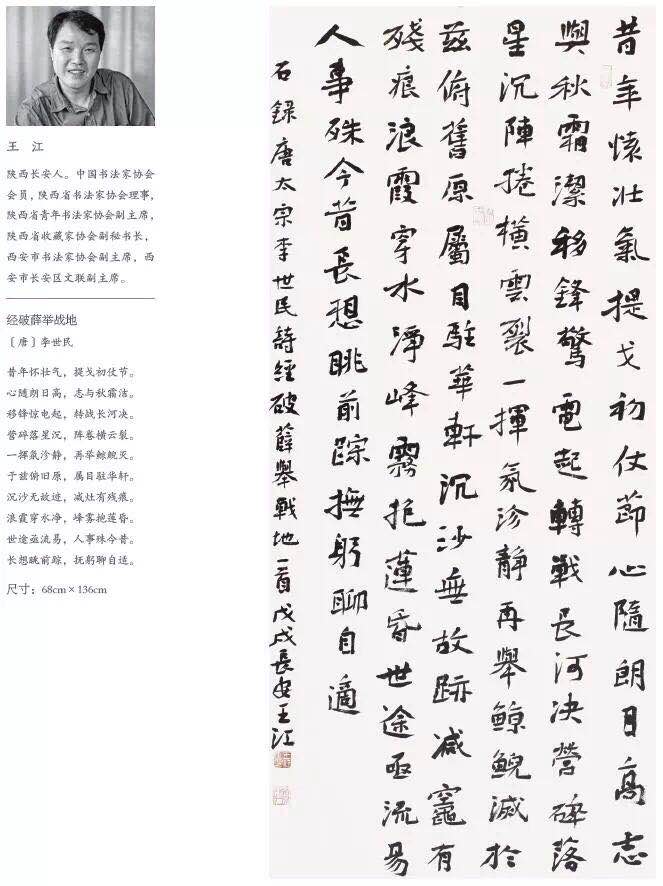 王 江
陕西长安人。中国书法家协会
会员，陕西省书法家协会理事，
陕西省青年书法家协会副主席，
陕西省收藏家协会副秘书长，
西安市书法家协会副主席，西
安市长安区文联副主席。
经破薛举战地
［唐］李世民
昔年怀壮气，提戈初仗节。
心随朗日高，志与秋霜洁。
移锋惊电起，转战长河决。
营碎落星沉，阵卷横云裂。
一挥氛沴静，再举鲸鲵灭。
于兹俯旧原，属目驻华轩。
沉沙无故迹，减灶有残痕。
浪霞穿水净，峰雾抱莲昏。
世途亟流易，人事殊今昔。
长想眺前踪，抚躬聊自适。
尺寸：68cm×136cm
昔年懷壯氣提戈初仗節心隨朗日高志
與秋霜潔移鋒驚電起轉戰長河决營碎落
星沉陣捲橫雲裂一揮氛沴靜再舉鯨鯢滅於
茲俯舊原屬目駐華軒沉沙無故跡減竈有
殘痕浪霞穿水淨峰霧抱蓮昏世途亟流易
人事殊今昔長想眺前踪撫躬聊自適
右録唐太宗李世民詩經破薛舉戰地一首戊戌長安王江